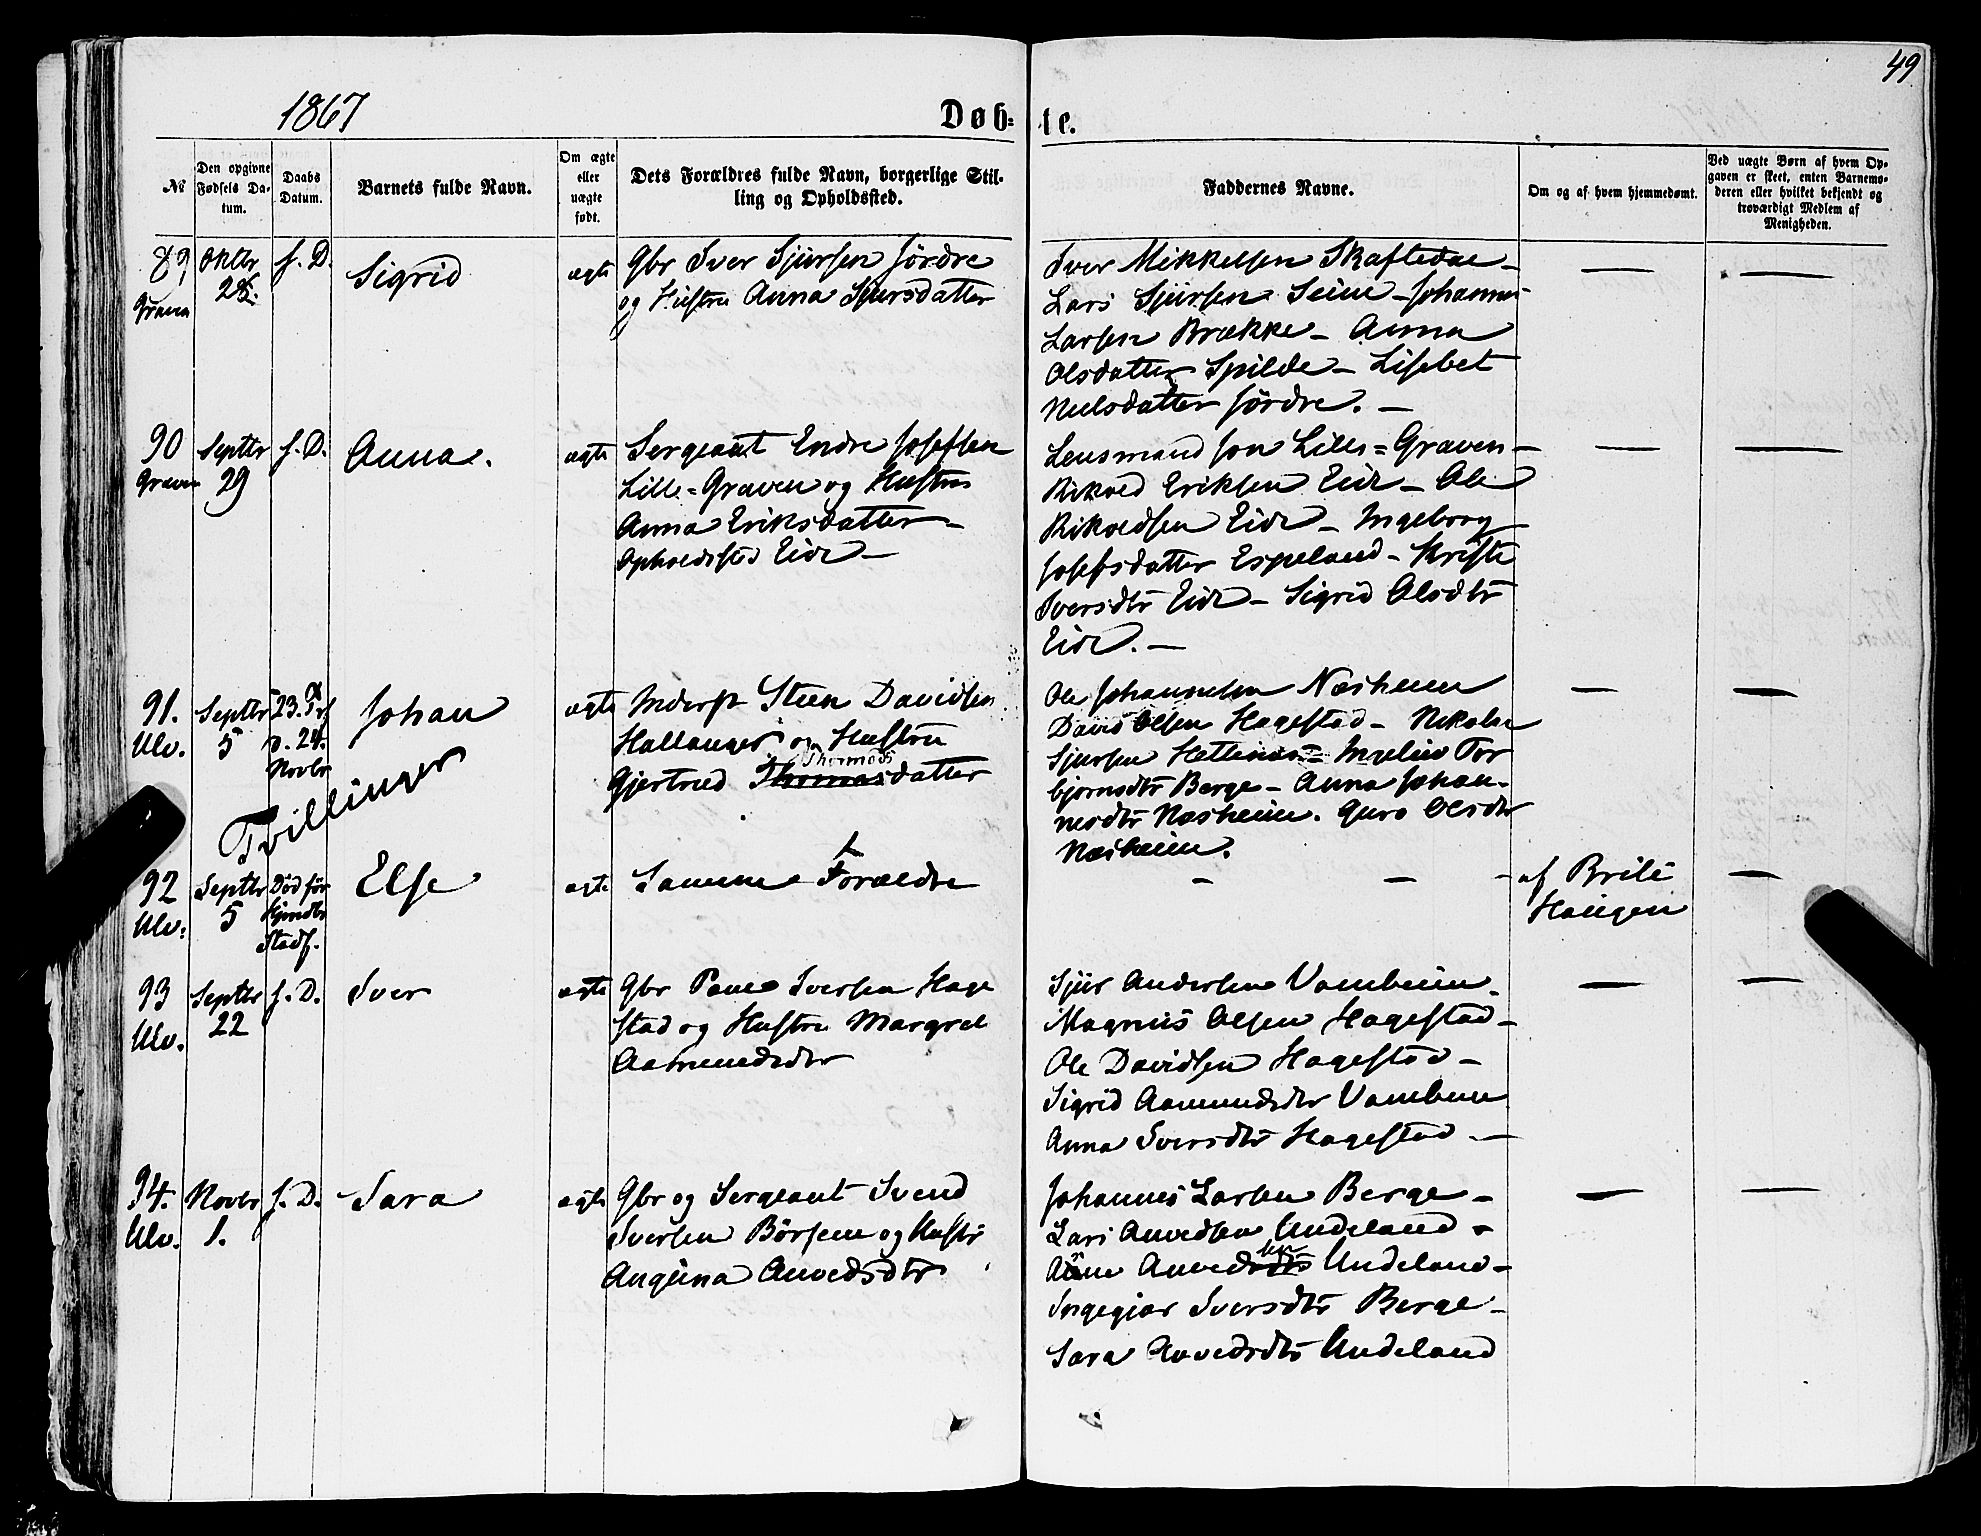 49
1867
Døb-te.
№
Den opgivne Fødsels Datum.
Daabs Datum.
Barnets fulde Navn.
Om ægte eller uægte født.
Dets Forældres fulde Navn, borgerlige Stilling og Opholdssted.
Faddernes Navne.
Om og af hvem hjemmedømt.
Ved uægte Børn af hvem Opgaven er skeet, enten Barnemoderen eller hvilket bekjendt og troværdigt Medlem af Menigheden.
89 Oktbr f. D. Sigrid ægte Gbr Iver Sjursen Førdre
Graven 28.
og Hustru Anna Sjursdatter
Iver Mikkelsen Skaftedal –
Lars Sjursen Seim – Johannes
Larsen Brække – Anna
Olsdatter Spilde – Lisbet
Nielsdatter Førdre. –
90 Septbr f. D. Anna. ægte Sergeant Endre Josefsen
Graven 29
Lille-Graven og Hustru
Anna Eriksdatter –
Opholdssted Eide –
Lensmand Jon Lille-Graven –
Rikold Eriksen Eide – Ole
Rikoldsen Eide – Ingeborg
Josefsdatter Espeland – Kristi
Iversdtr Eide – Sigrid Olsdtr
Eide. –
91. Septbr 23. Johan ægte Inderst Steen Davidsen
Ulv. 5 p. 24.
Novbr
Hallanger og Hustru
Gjertrud Thomasdatter
Thormods
Ole Johannesen Næsheim
David Olsen Hagestad – Nikolai
Sjursen Hellenes – Ingeliv Tor
bjørnsdtr Berge – Anna Johan-
nesdtr Næsheim. Guro Olsdtr
Næsheim.
Tvillinger
92 Septbr Død før Else ægte Samme Forældre
Ulv: 5 Hjmdbs
Stadf.
– – – af Brite –
Haugen
93 Septbr f. D. Iver ægte Gbr Povel Iversen Hage
Ulv. 22
stad og Hustru Margret
Aamundsdtr
Sjur Andersen Vambheim –
Magnus Olsen Hagestad –
Ole Davidsen Hagestad –
Sigrid Aamundsdtr Vambheim
Anna Iversdtr Hagestad –
94. Novbr f. D. Sara ægte Gbr og Sergeant Svend
Ulv. 1.
Iversen Børsem og Hustr
Angjerna Anvedsdtr
Johannes Larsen Berge –
Lars Anvedsen Undeland –
Anvedsdtr Undeland –
sen
Ingegjær Iversdtr Berge –
Sara Anvedsdtr Undeland